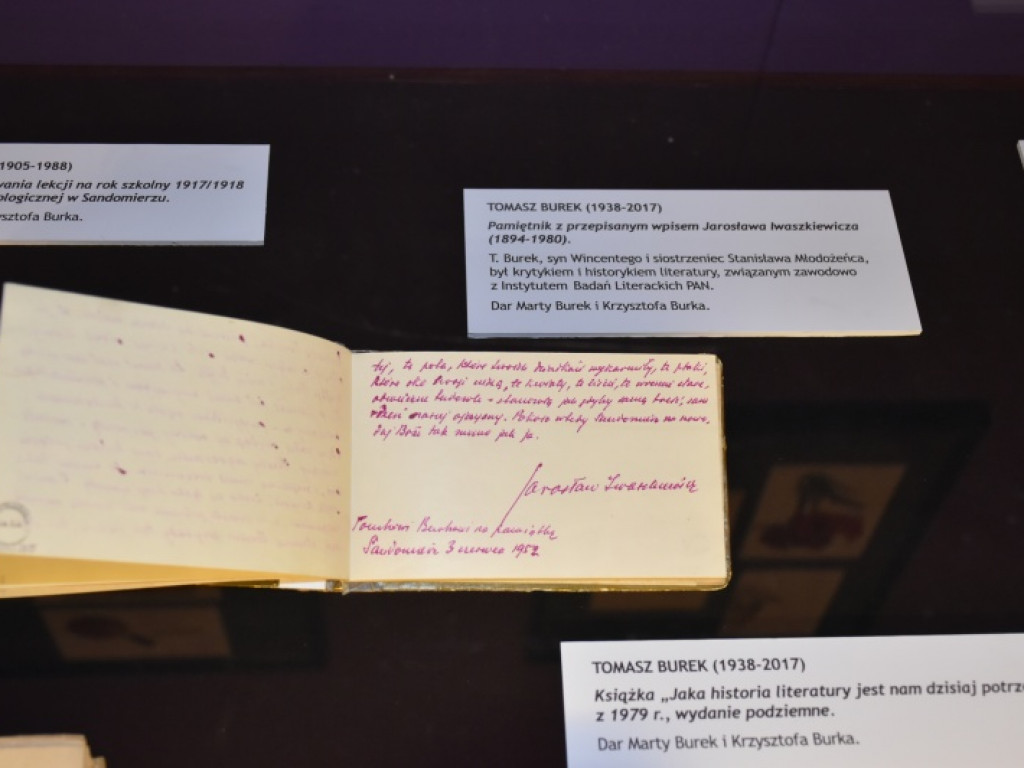 1905-1988)
wania lekcji na rok szkolny 1917/1918
ologicznej w Sandomierzu.
ysztofa Burka.
TOMASZ BUREK (1938-2017)
Pamiętnik z przepisanym wpisem Jarosława Iwaszkiewicza
(1894-1980).
T. Burek, syn Wincentego i siostrzeniec Stanisława Młodożeńca,
był krytykiem i historykiem literatury, związanym zawodowo
z Instytutem Badań Literackich PAN.
Dar Marty Burek i Krzysztofa Burka.
tej, te pola, które wykarmiły, te ptaki,
które oko Twoje widzą, te kwiaty, te liście, te
jak gdyby samą treść,
naszej ojczyzny. Pokoju Sandomierz na nowo.
Daj Boże tak mnie jak ja.
Jarosław Iwaszkiewicz
Tomkowi Burkowi na pamiątkę
Sandomierz 3 czerwca 1952
TOMASZ BUREK (1938-2017)
Książka „Jaka historia literatury jest nam dzisiaj potrze
z 1979 r., wydanie podziemne.
Dar Marty Burek i Krzysztofa Burka.